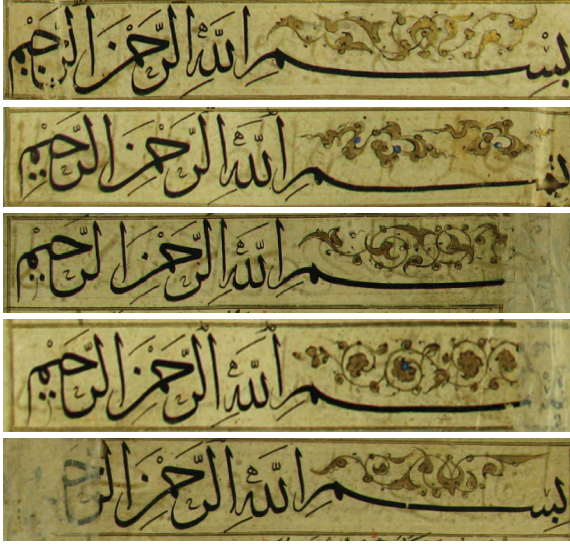 بسم الله الرحمن الرحيم
بسم الله الرحمن الرحيم
سم الله الرحمن الرحيم
سم الله الرحمن الرحيم
بسم الله الرحمن الرح